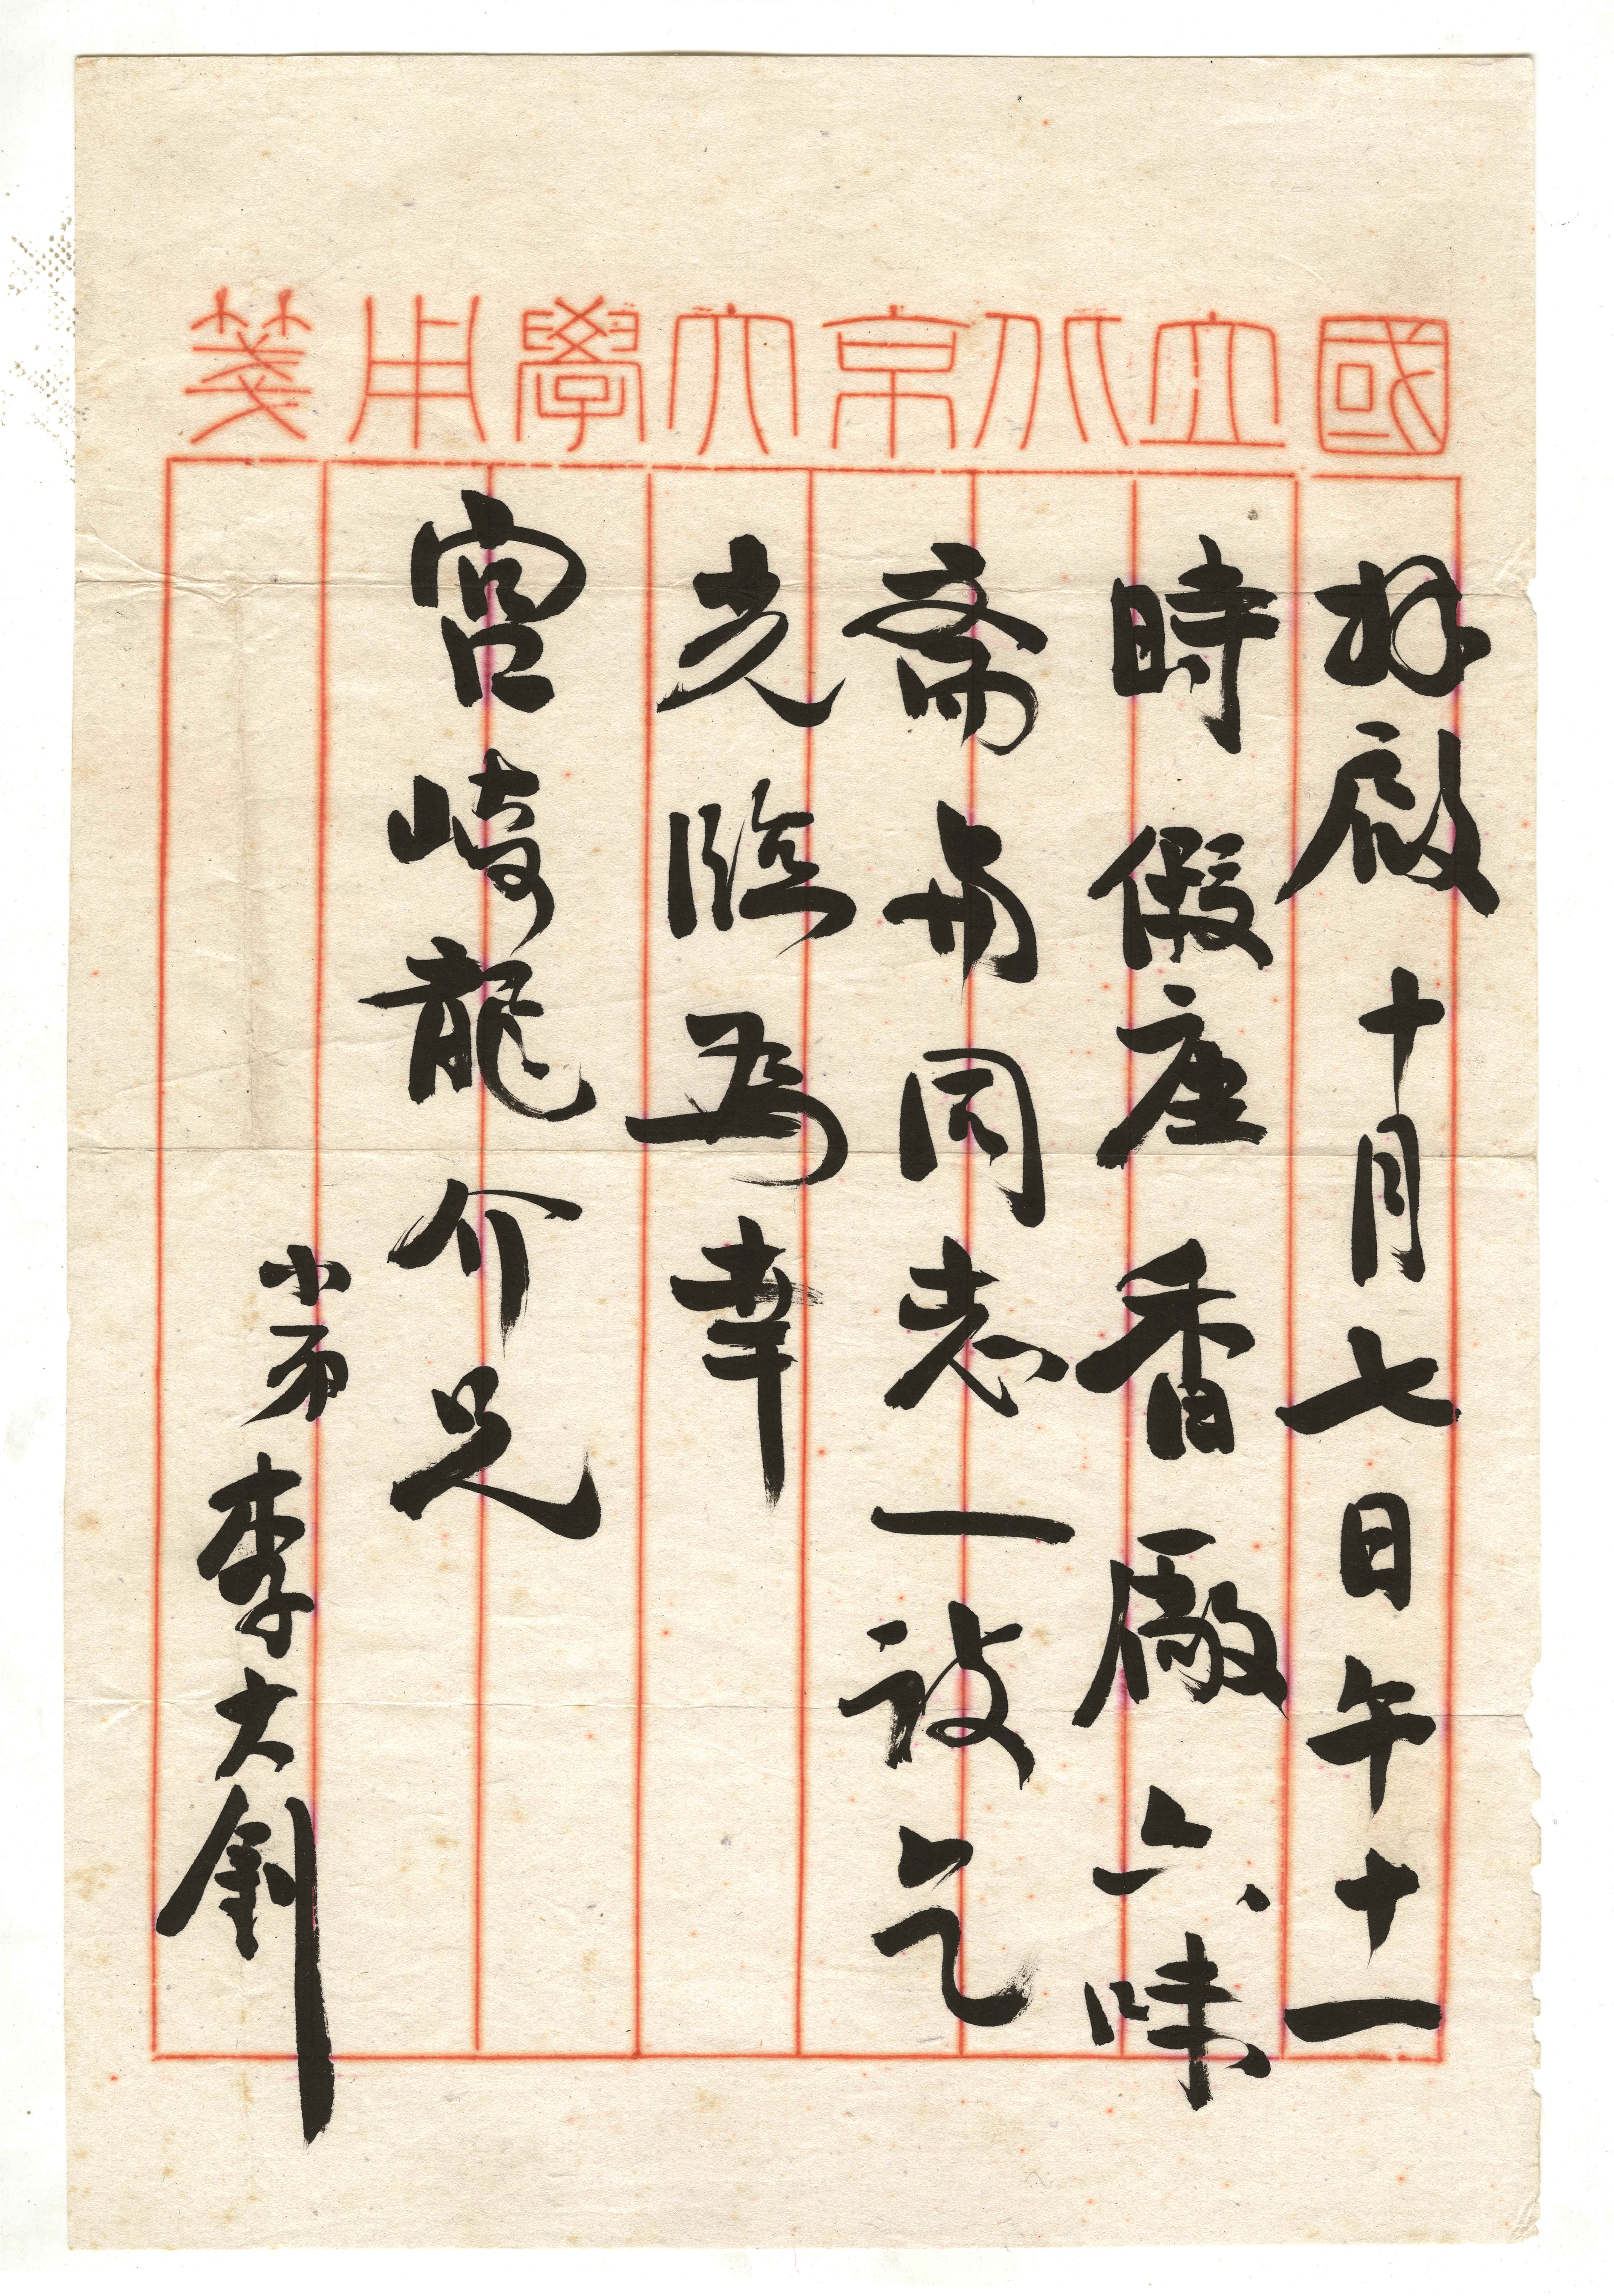 國立北京大學用箋
拜啟十月七日午十一
時假座香廠六味
齋與同志一談乞
光臨為幸
宮崎龍介兄
小弟李大釗